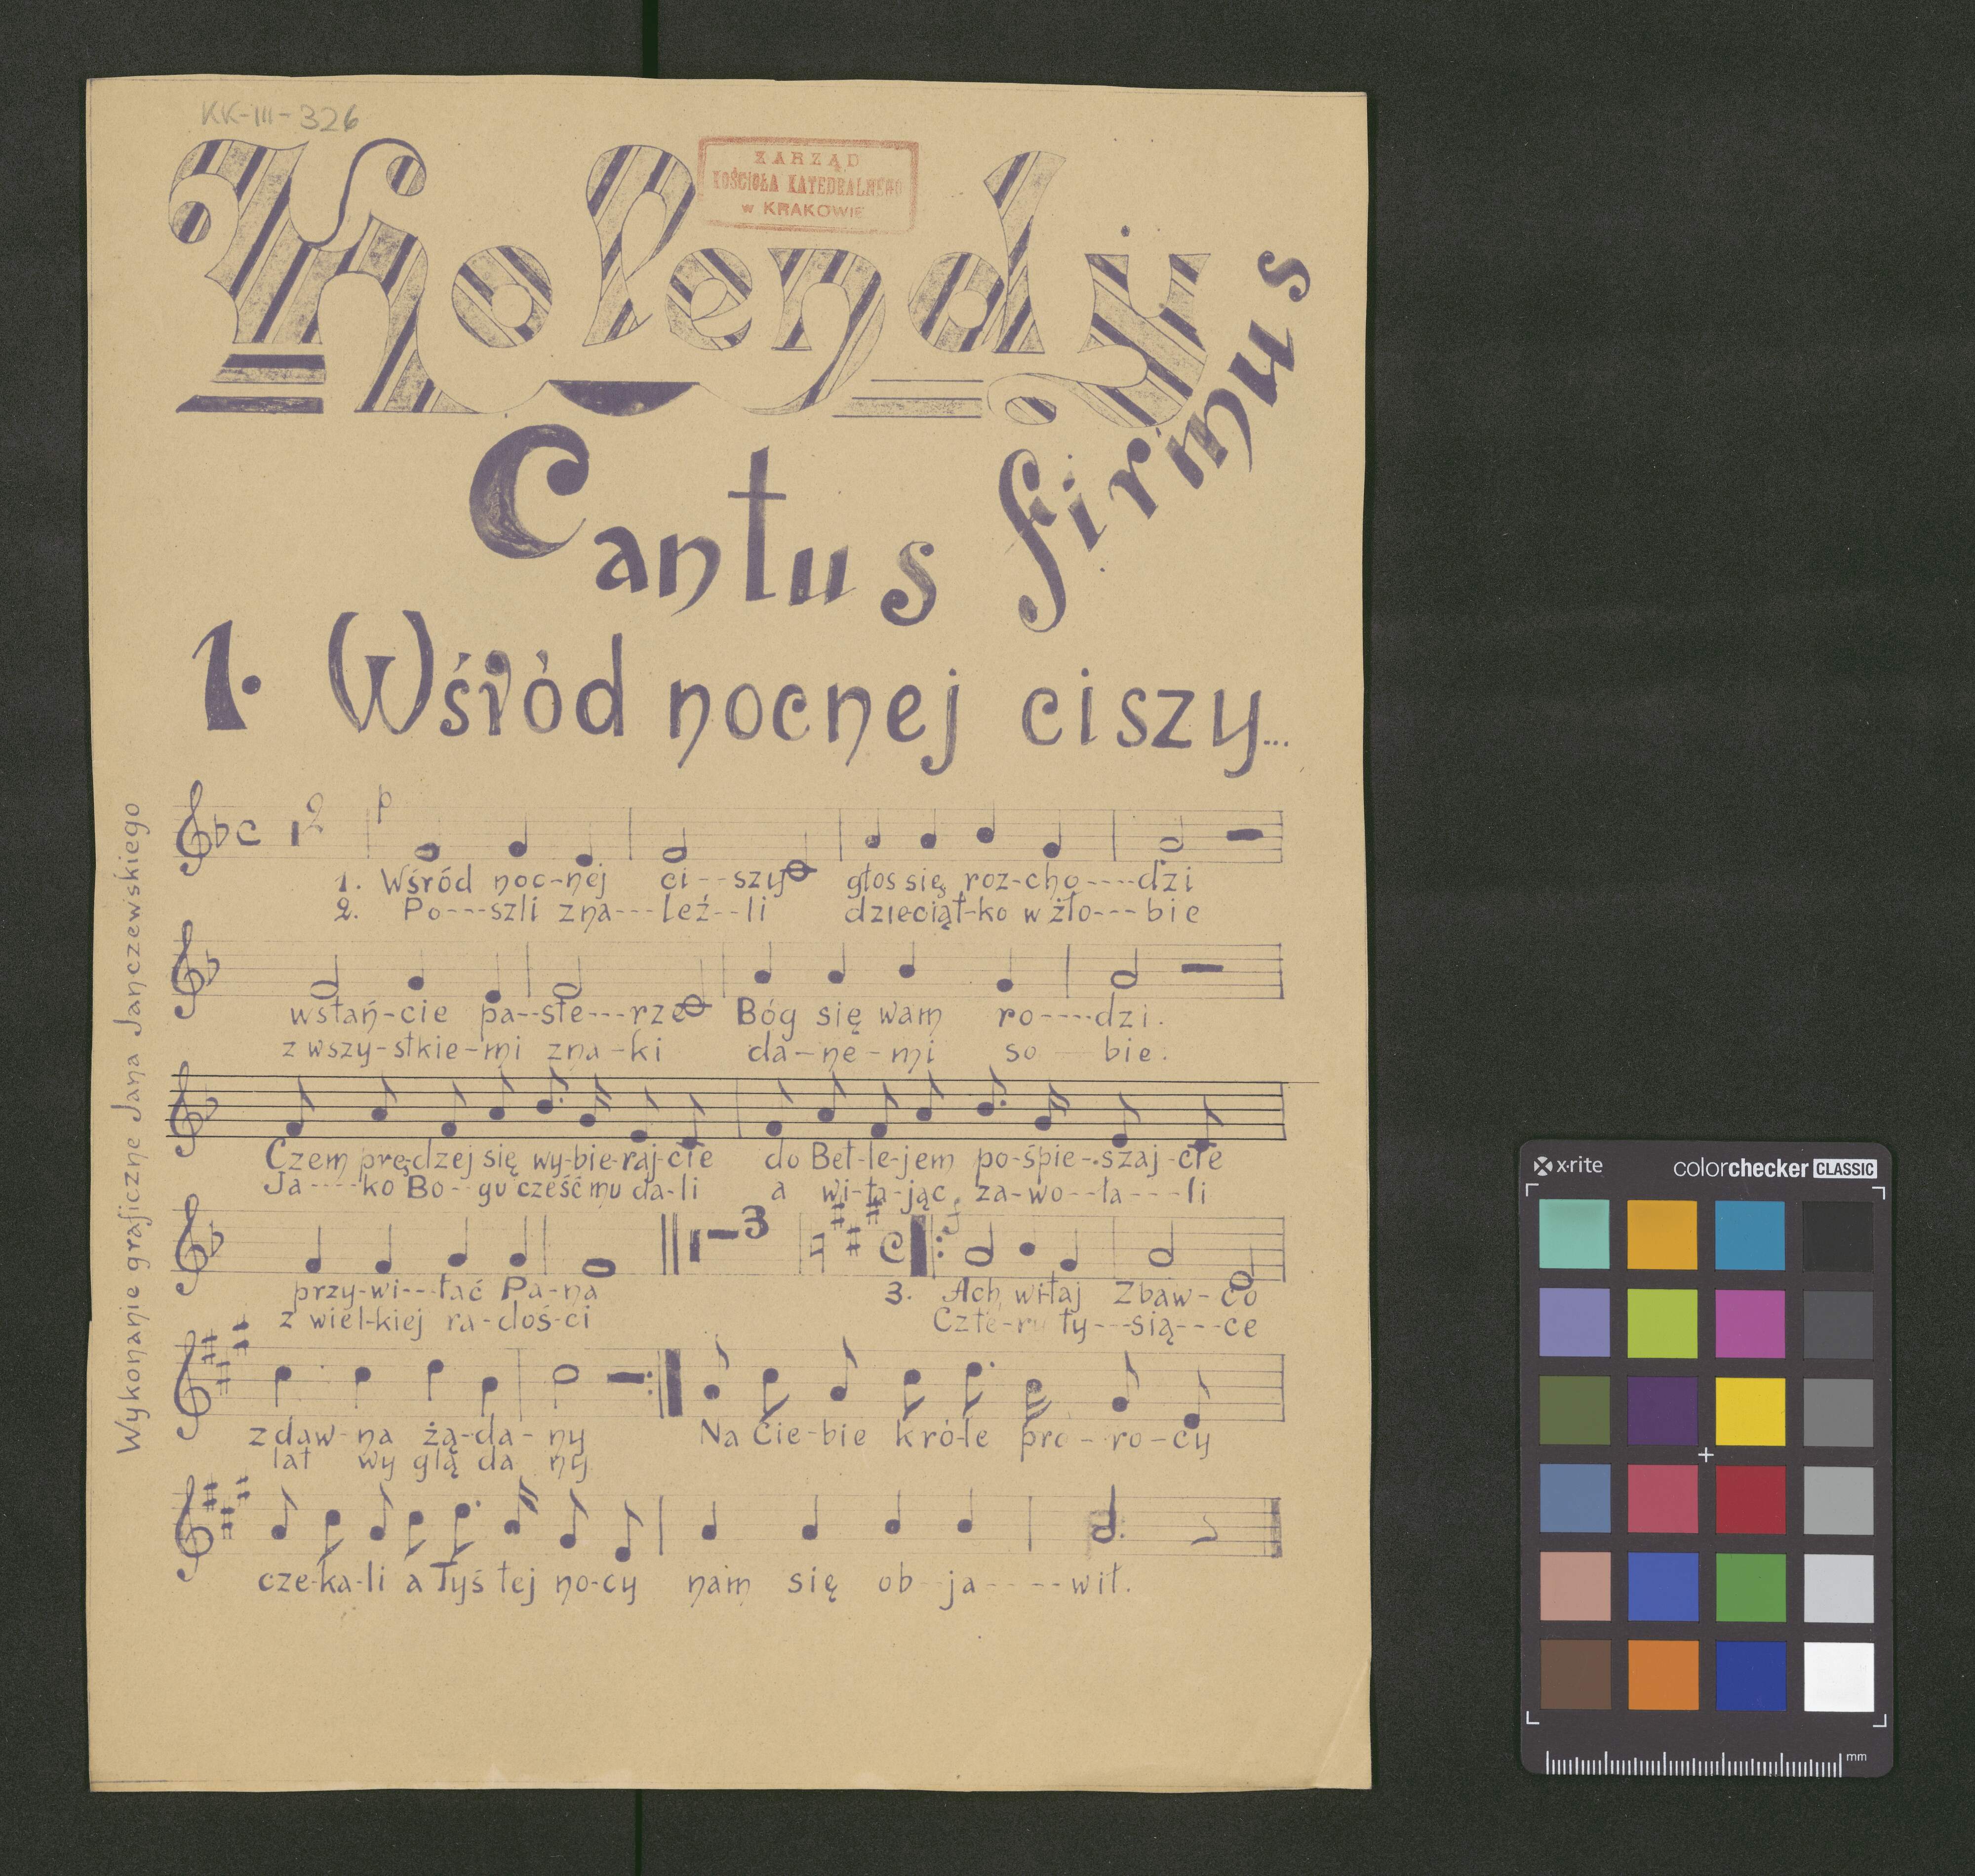 KK-III-326
ZARZĄD
KOŚCIOŁA KATEDRALNEGO
w KRAKOWIE
Kolendy
Cantus firmus
1. Wśród nocnej ciszy...
Wykonanie graficzne Jana Janczewskiego
2 p
1. Wśród noc-nej ci--szy głos się roz-cho----dzi
2. Po---szli zna---leź--li dzieciąt-ko w żło---bie
wstań-cie pa--ste---rze Bóg się wam ro----dzi.
z wszy-stkie-mi zna-ki da-ne-mi so bie.
Czem prę-dzej się wy-bie-raj-cie do Bet-le-jem po-śpie-szaj-cie
Ja----ko Bo--gu cześć mu da-li a wi-ta-jąc za-wo--ła---li
3 f
przy-wi---tać Pa-na 3. Ach witaj Zbaw-co
z wiel-kiej ra-doś-ci Czte-ry ty---sią---ce
z daw-na żą-da-ny Na Cie-bie kró-le pro-ro-cy
lat wy glą da ny
cze-ka-li a Tyś tej no-cy nam się ob-ja----wił.
x-rite colorchecker CLASSIC
mm